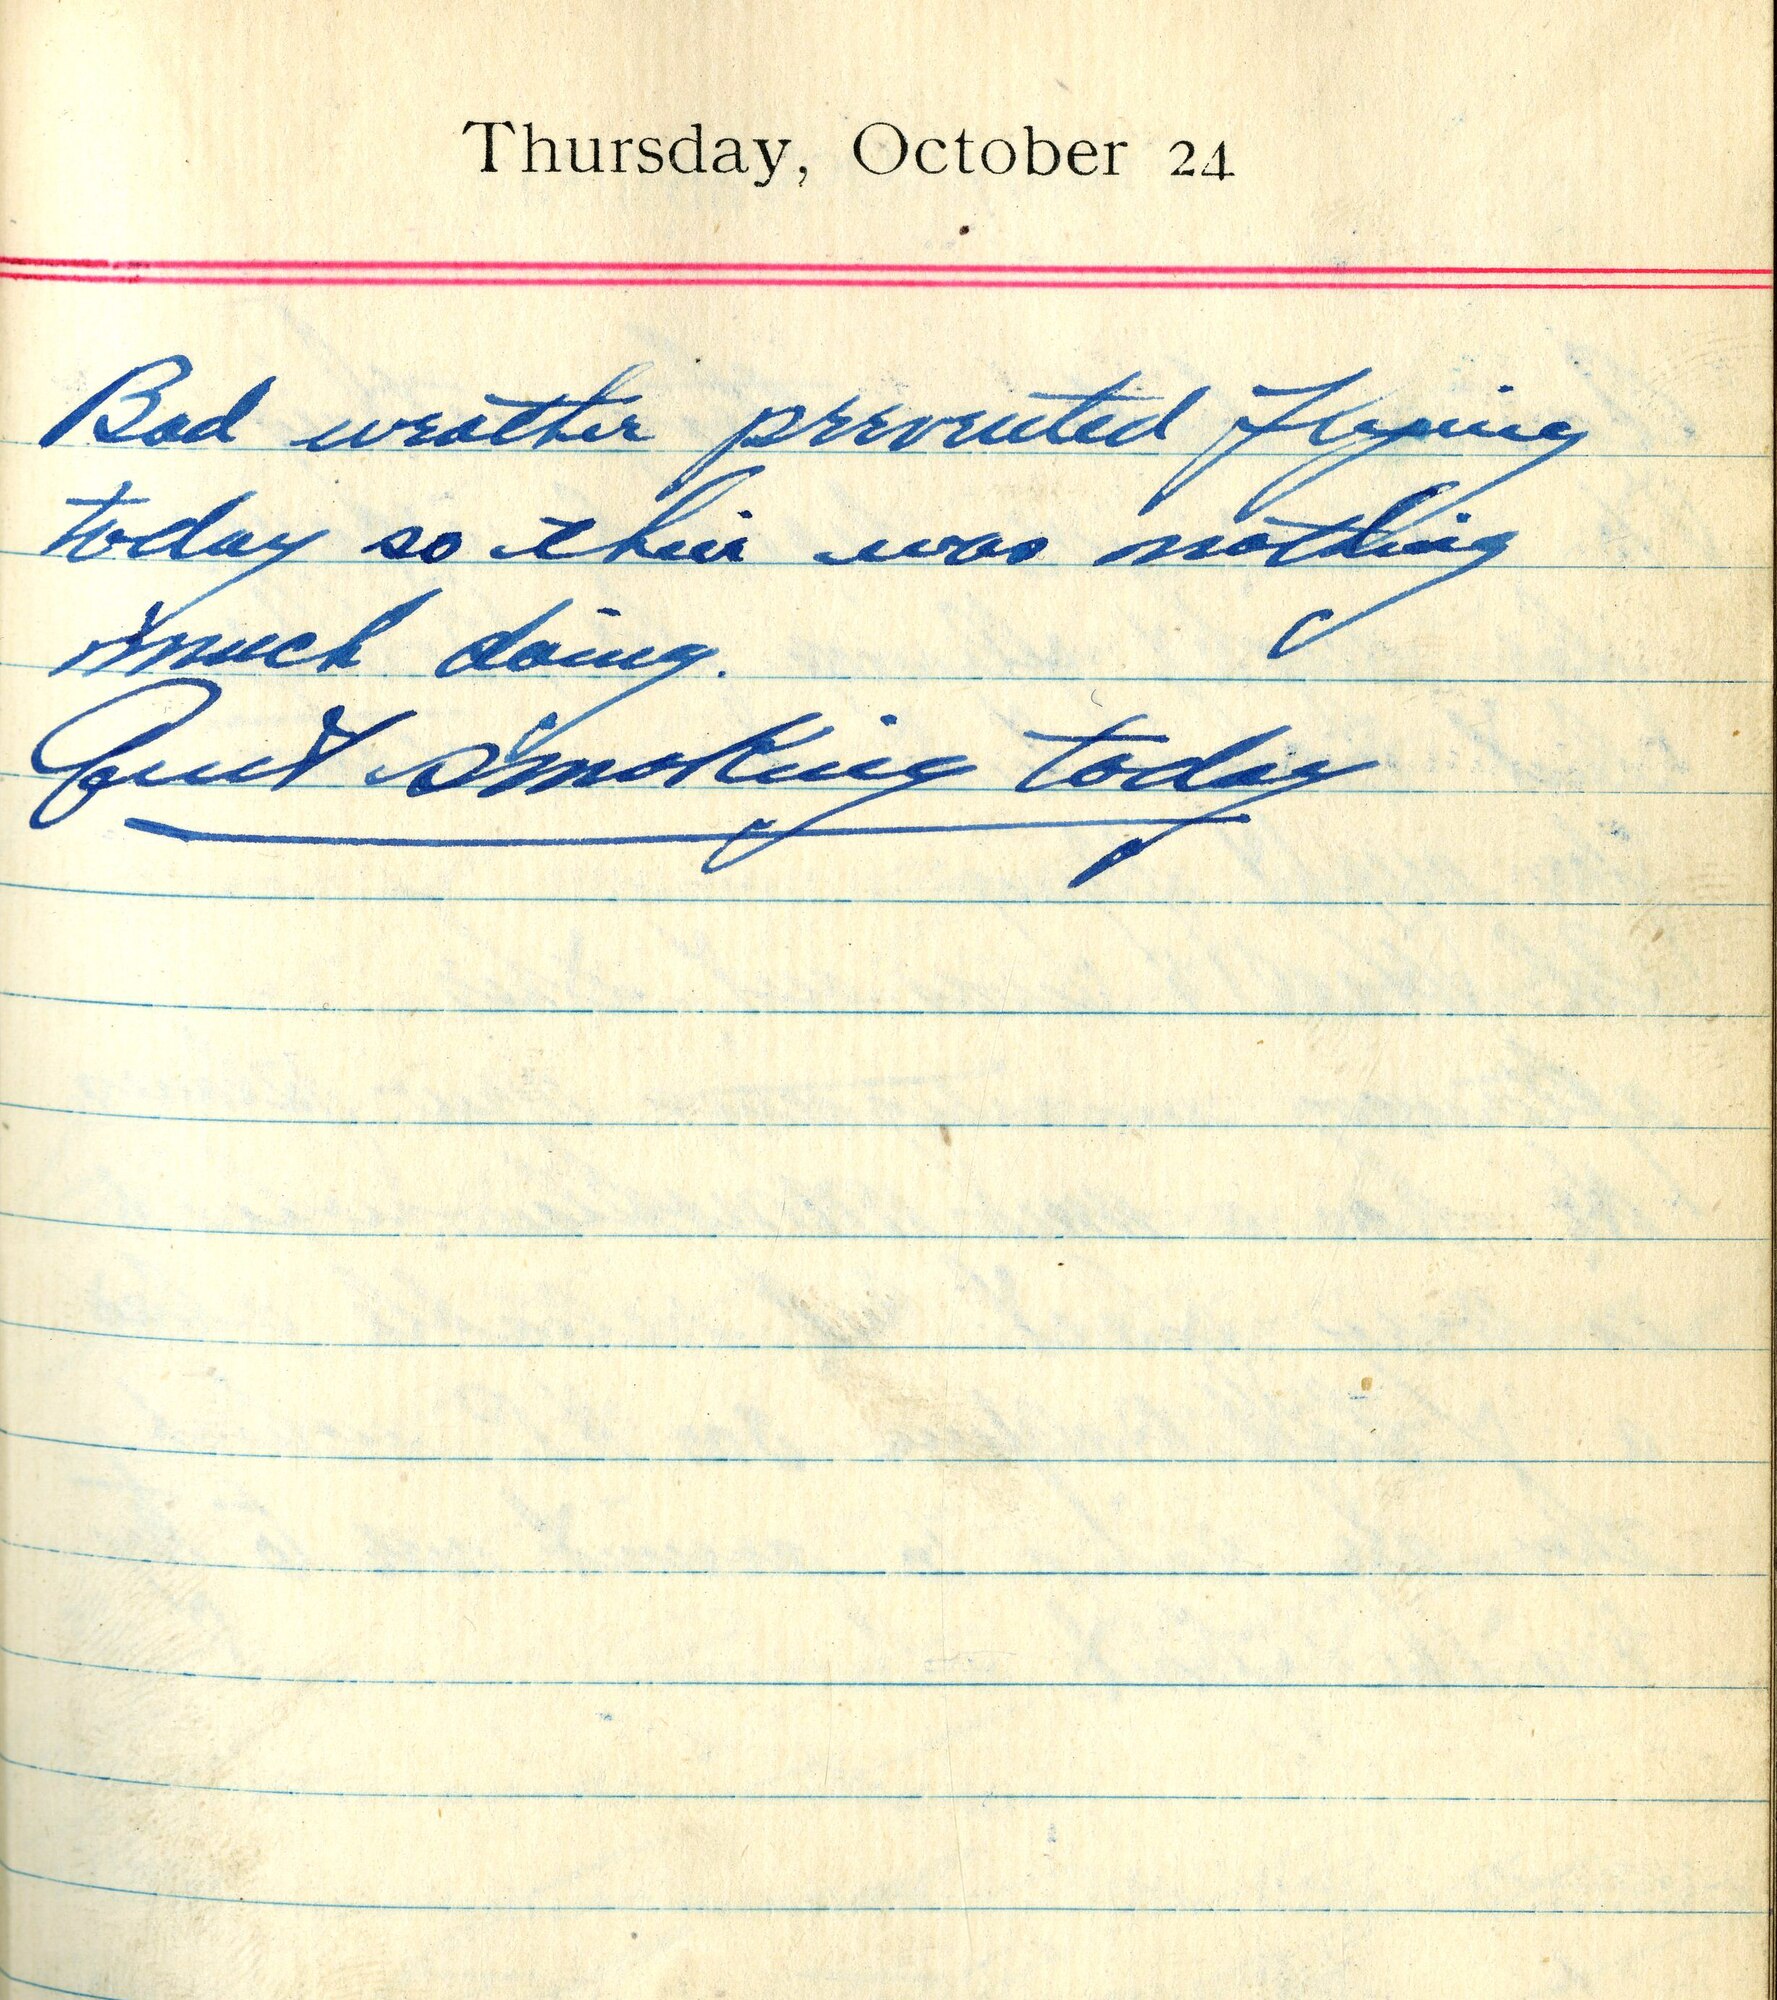 Thursday, October 24
Bad weather prevented flying
today so their was nothing
much doing.
Quit smoking today